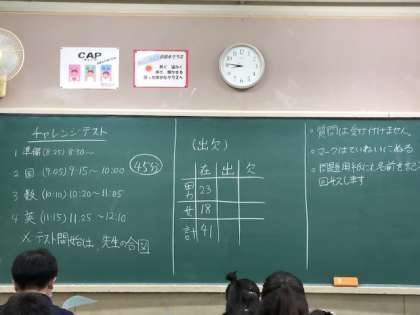 CAP
チャレンジテスト
1 準備 (8:25) 8:30〜
2 国 (9:05) 9:15〜10:00
45分
3 数 (10:10) 10:20〜11:05
4 英 (11:15) 11:25〜12:10
※ テスト開始は、先生の合図
(出欠)
在 出 欠
男 23
女 18
計 41
○ 質問は受け付けません。
○ マークはていねいにぬる
○ 問題用紙にも名前を
回収します